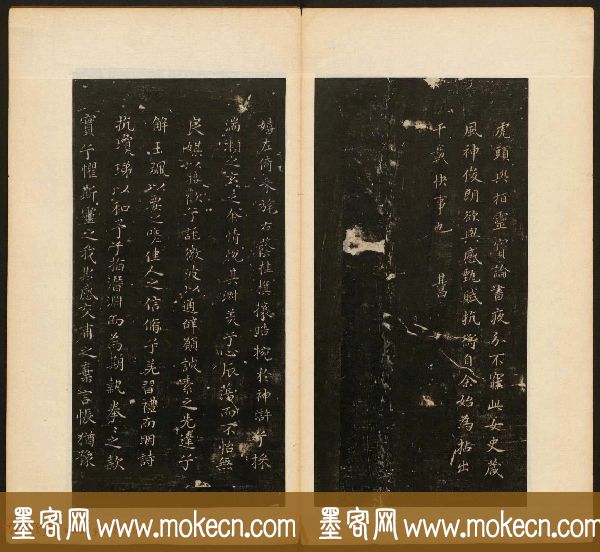 虎頭與桓靈寶論書夜分不寐此女史箴
風神俊朗欲與感甄賦抗衡自余始為拈出
千載快事也 其昌
嬉左倚采旄右蔭桂旗攘皓捥於神滸兮採
湍瀨之玄芝余情悅其淑美兮心振蕩而不怡無
良媒以接歡兮託微波以通辭願誠素之先達兮
解玉珮以要之嗟佳人之信脩兮羌習禮而明詩
抗瓊珶以和予兮指潛淵而為期執拳々之款
實兮懼斯靈之我欺感交甫之棄言悵猶豫
墨客网www.mokecn.com
墨客网www.mokecn.com